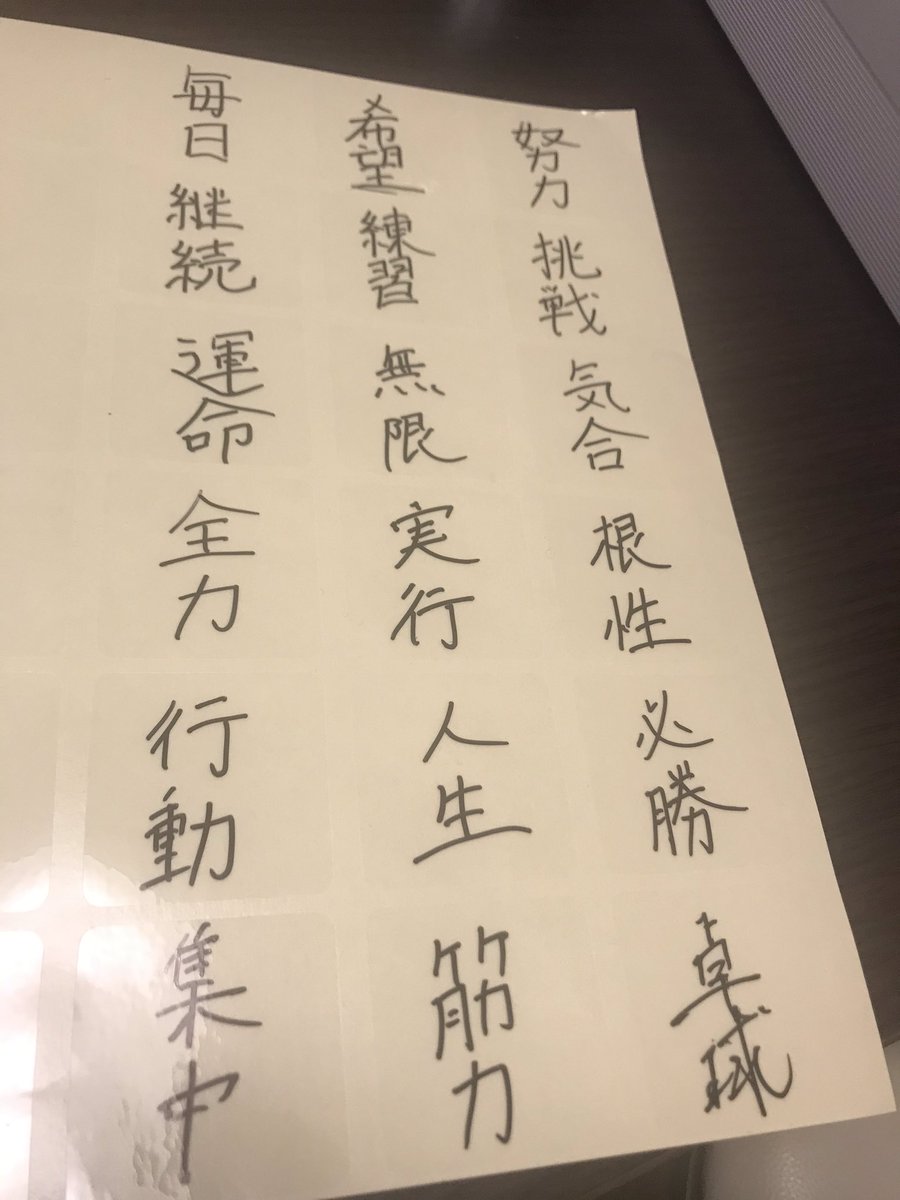 努力 挑戦 気合 根性 必勝 卓球
希望 練習 無限 実行 人生 筋力
毎日 継続 運命 全力 行動 集中